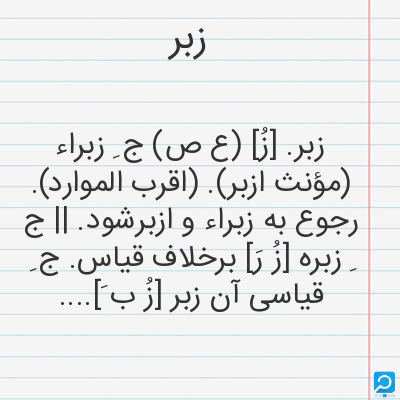 زبر
زبر. [زُ] (ع ص) ج ِ زبراء
(مؤنث ازبر). (اقرب الموارد).
رجوع به زبراء و ازبرشود. || ج
ِ زبره [زُ رَ] برخلاف قیاس. ج ِ
قیاسی آن زبر [زُ ب َ]....